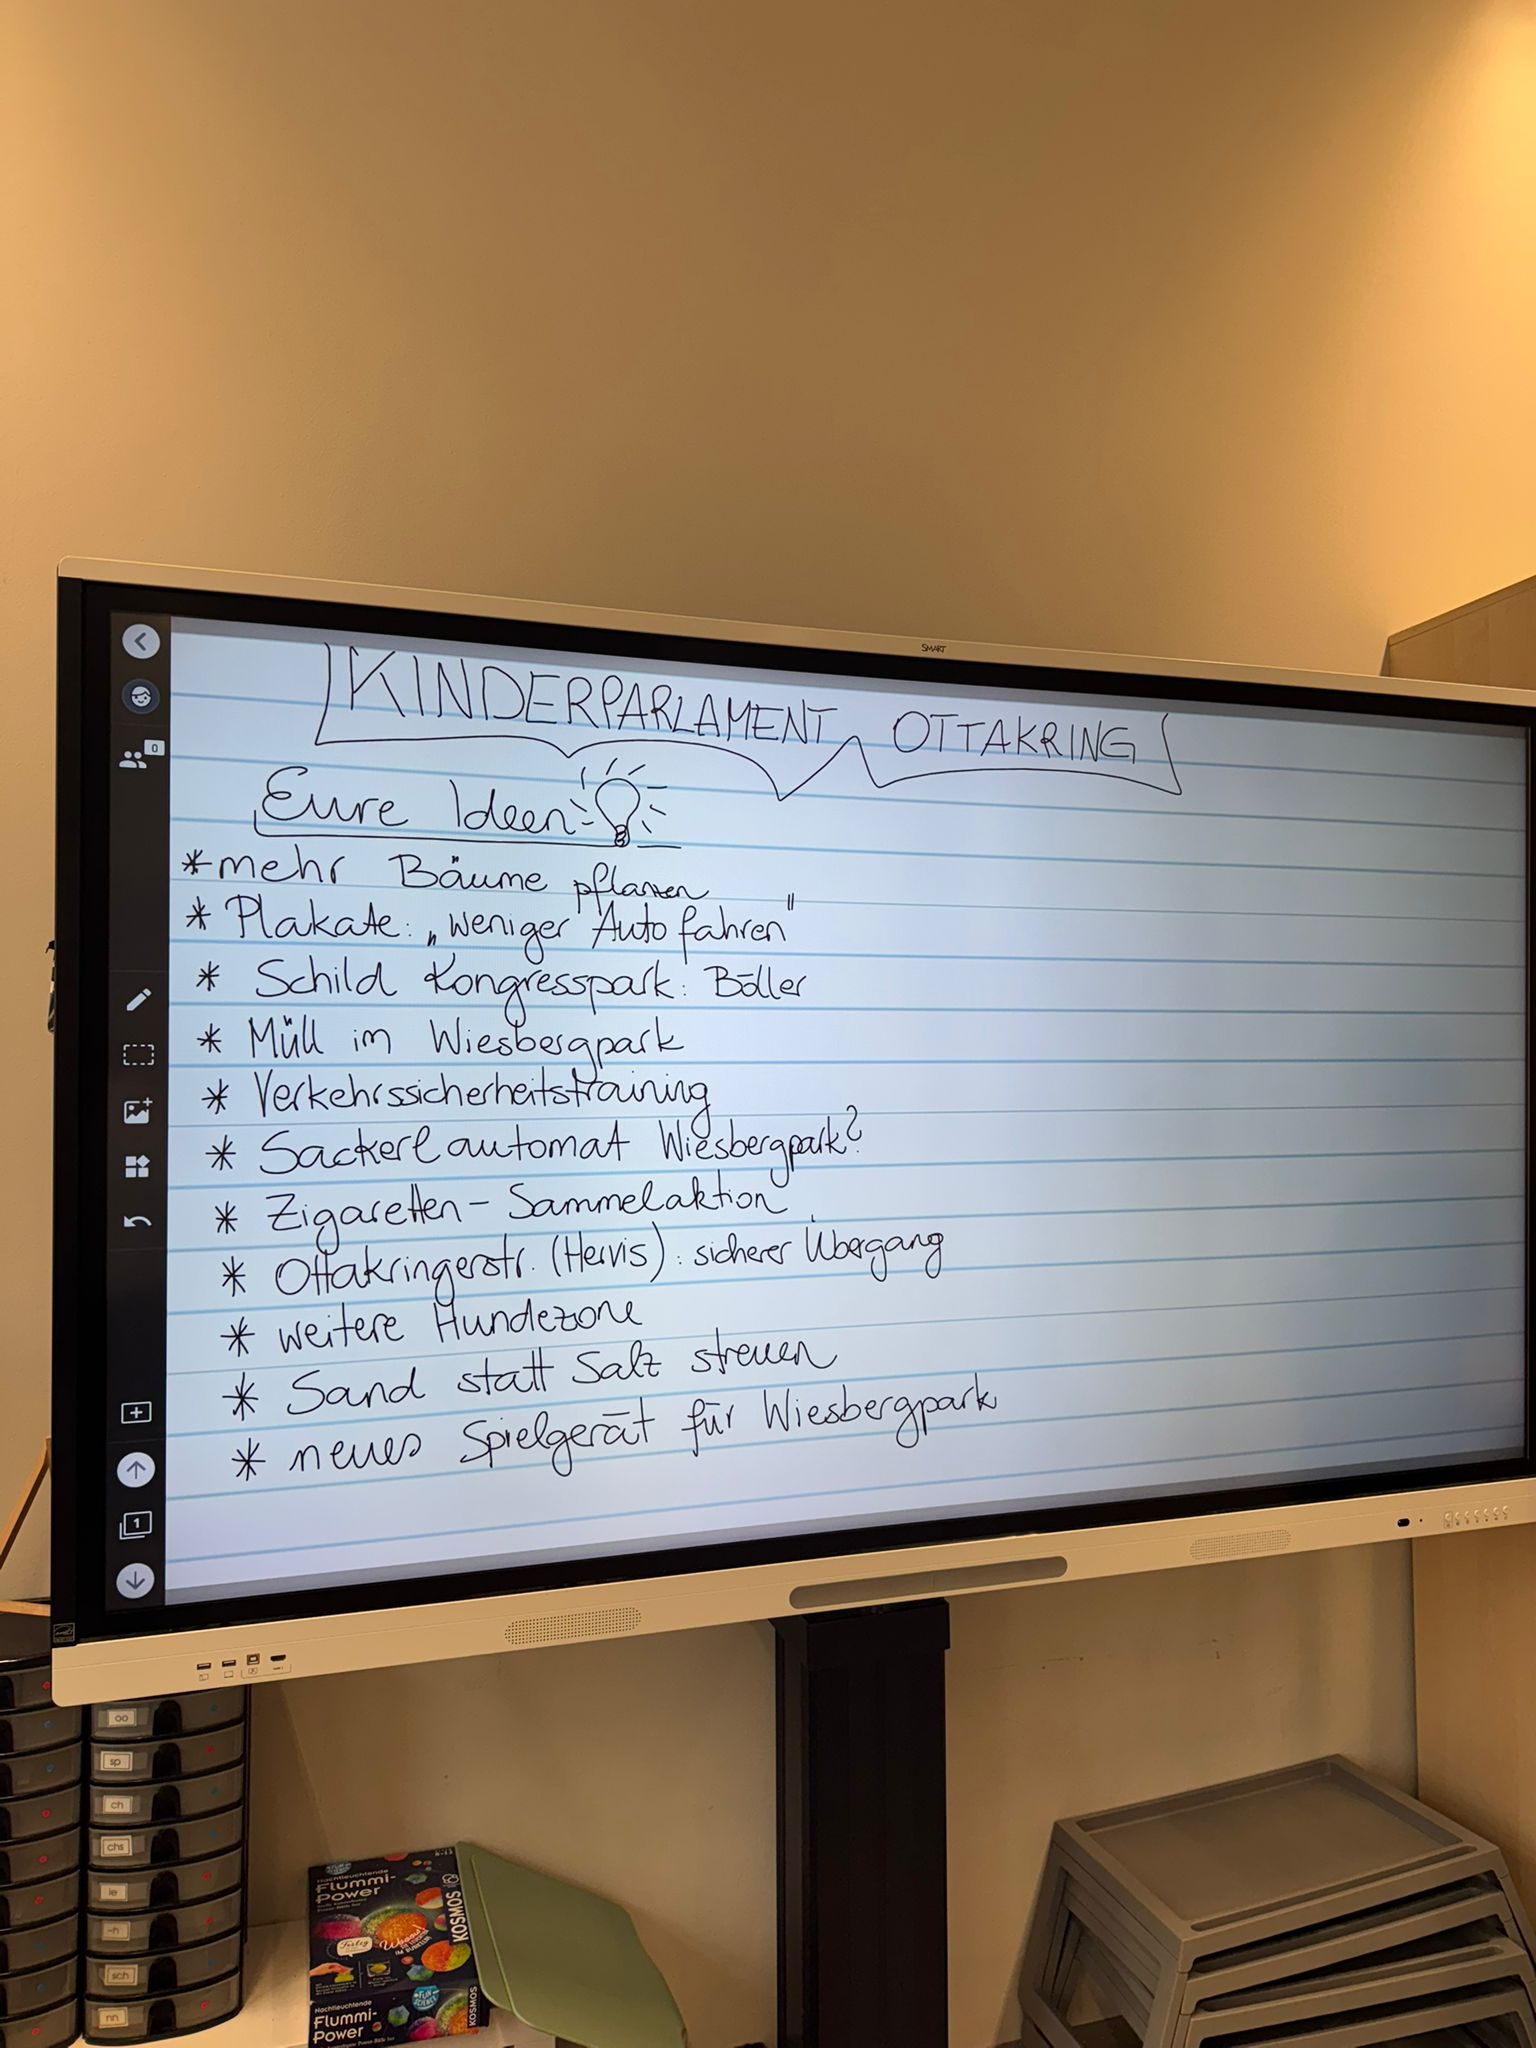 SMART
0
KINDERPARLAMENT OTTAKRING
Eure Ideen:
* mehr Bäume pflanzen
* Plakate: „weniger Auto fahren"
* Schild Kongresspark: Böller
* Müll im Wiesbergpark
* Verkehrssicherheitstraining
* Sackerlautomat Wiesbergpark?
* Zigaretten-Sammelaktion
* Ottakringerstr. (Hervis): sicherer Übergang
* weitere Hundezone
* Sand statt Salz streuen
* neues Spielgerät für Wiesbergpark
1
oo
sp
ch
chs
ie
-h
sch
nn
Nachtleuchtende
Flummi-
Power
KOSMOS
Nachtleuchtende
Flummi-
Power
FUN SCIENCE
KOSMOS